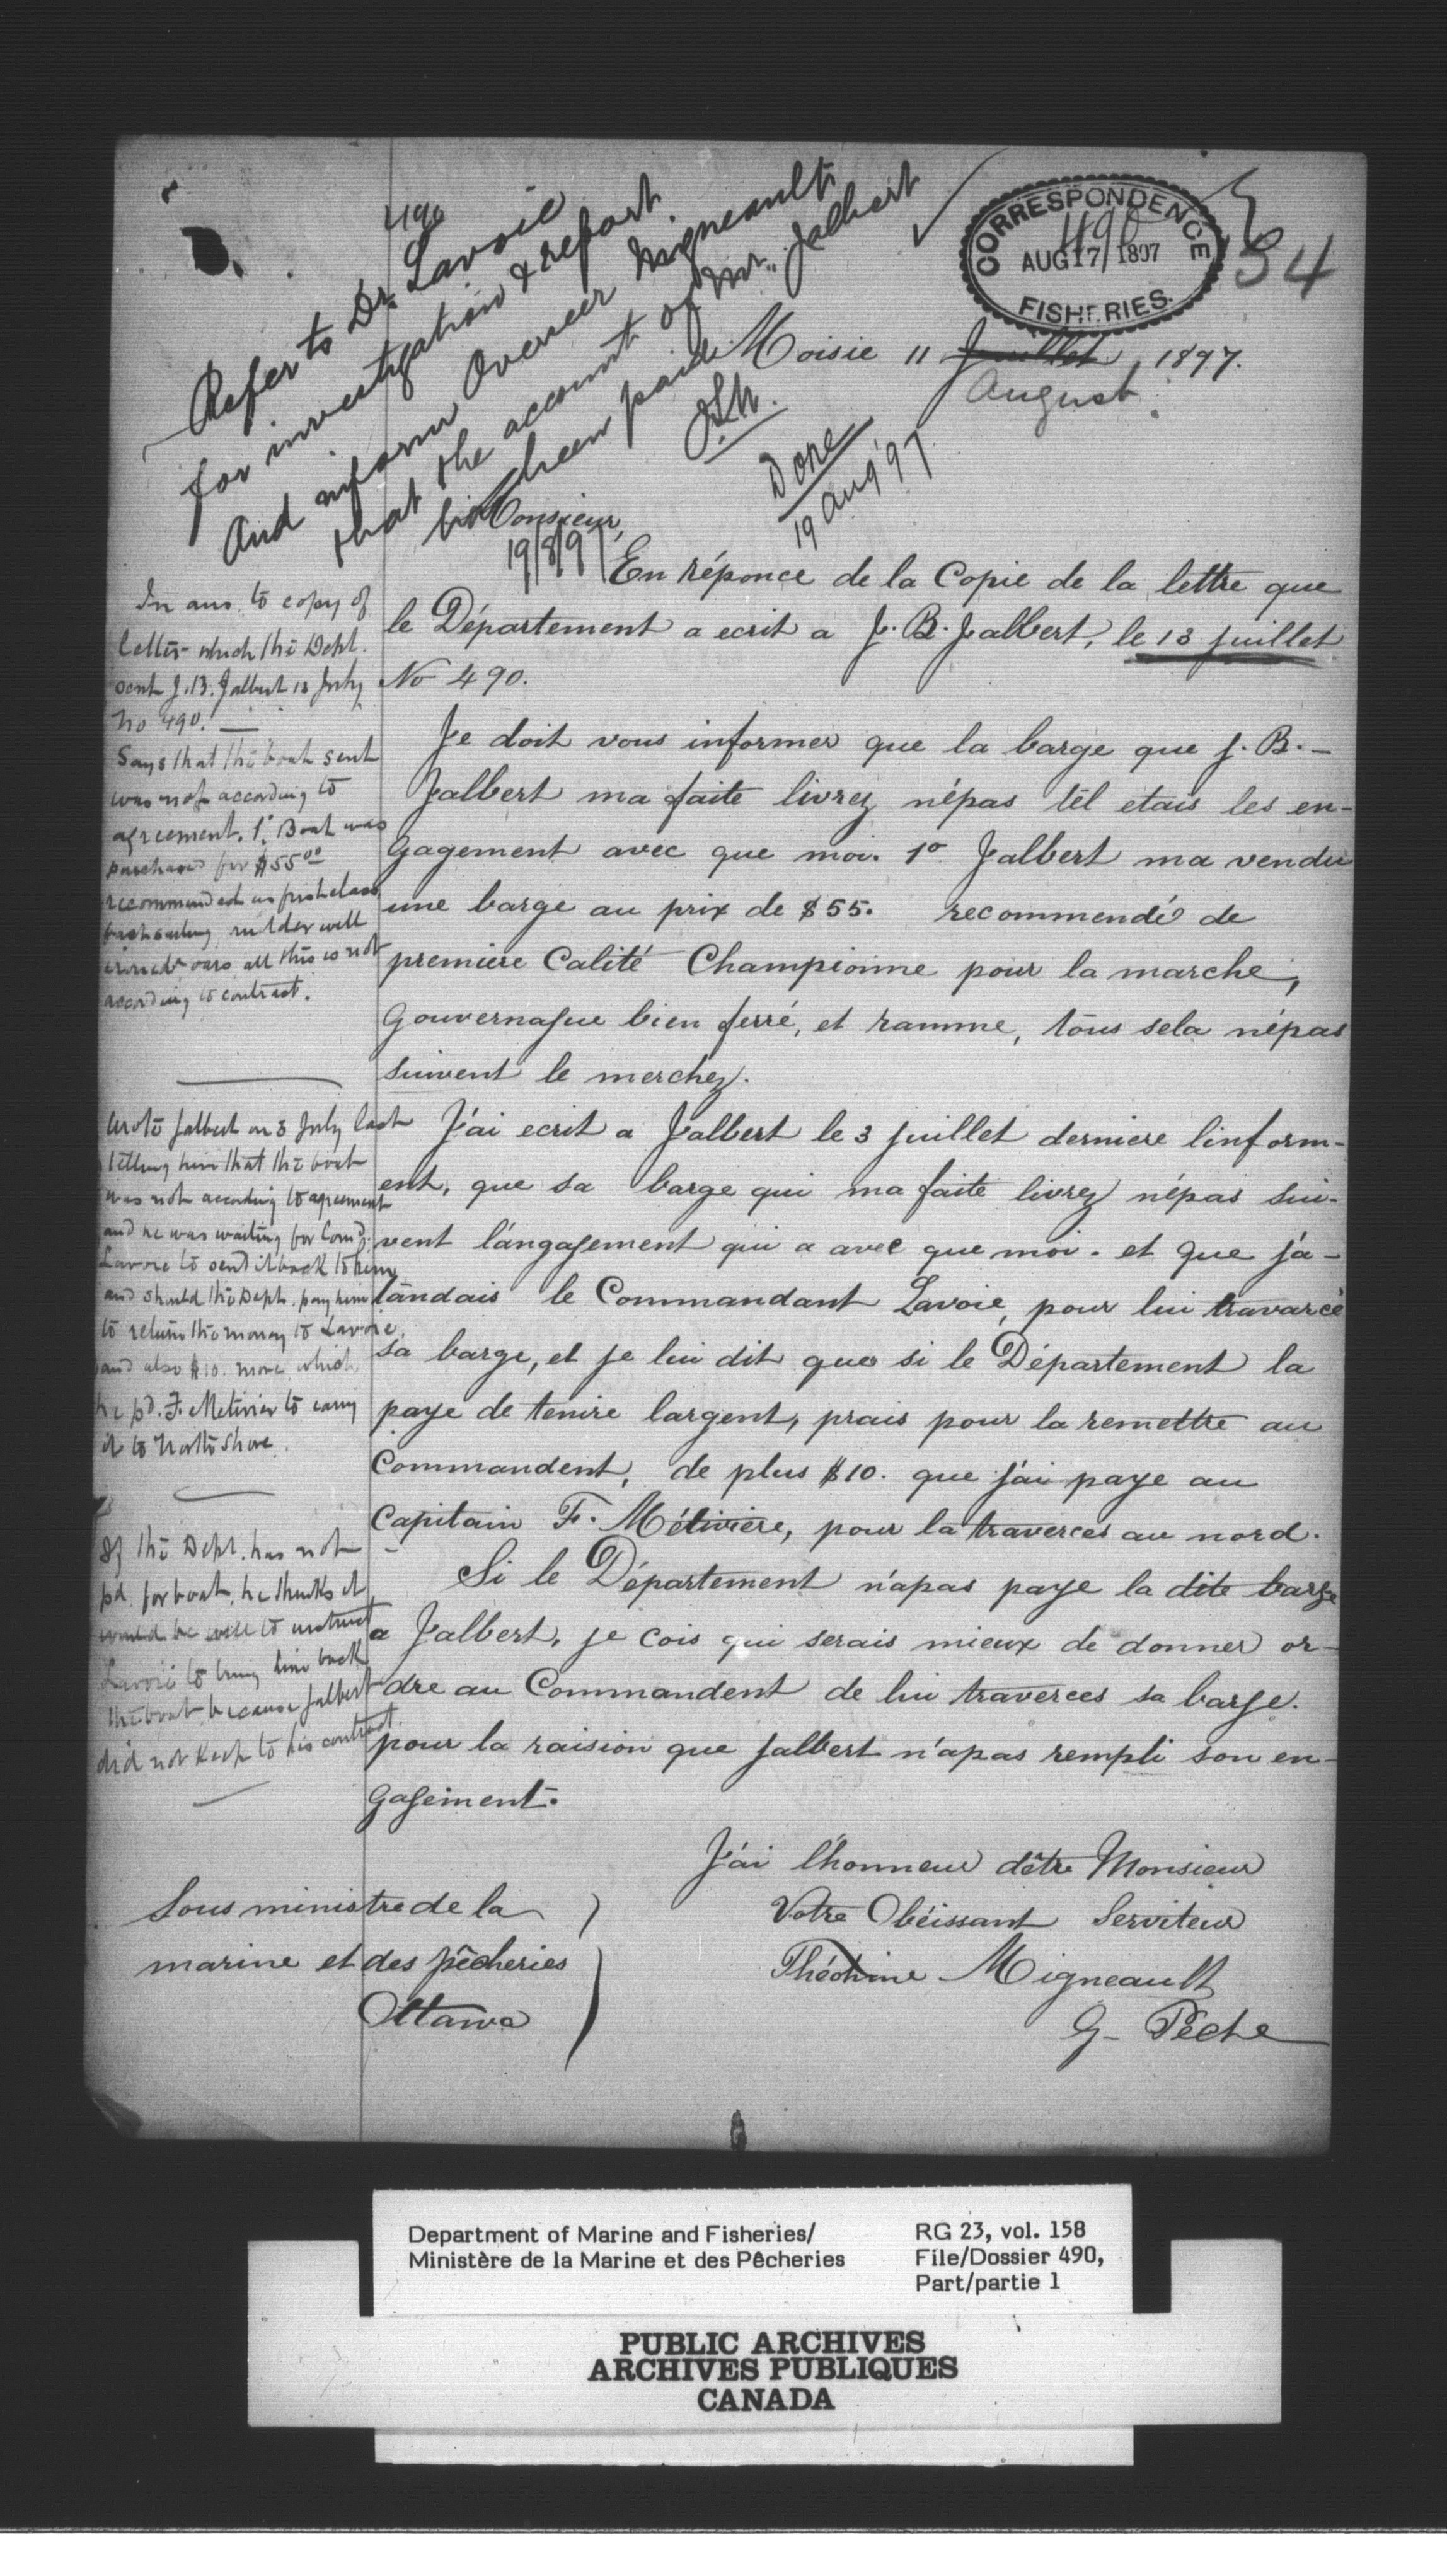 490
Refer to Dr. Lavoie
for investigation & report
And inform Overseer Migneault
that the account of Mr. Jalbert
has been paid.
19/8/97
Done
19 Aug '97
CORRESPONDENCE
490
AUG 17 1897
FISHERIES.
34
Moisie 11 Juillet, 1897.
August
Monsieur,
En réponce de la Copie de la lettre que
le Département a ecrit a J. B. Jalbert, le 13 juillet
No 490.
Je doit vous informer que la barge que J. B. -
Jalbert ma faite livrez népas tél etais les en-
gagement avec que moi. 1o Jalbert ma vendu
une barge au prix de $55. recommendé de
premiere Calité Championne pour la marche,
Gouvernague bien ferré, et ramme, tous sela népas
suivent le merchez.
J'ai ecrit a Jalbert le 3 juillet derniere l'inform-
ent, que sa barge qui ma faite livrez népas sui-
vent l'angagement qui a avec que moi. et que j'a-
tandais le Commandant Lavoie, pour lui travarcé
sa barge, et je lui dit que si le Département la
paye de tenire largent, prais pour la remettre au
Commandent, de plus $10. que j'ai paye au
Capitain F. Métiviere, pour la traverces au nord.
Si le Département n'apas paye la dite barge
a Jalbert, je cois qui serais mieux de donner or-
dre au Commandent de lui traverces sa barge.
pour la raision que Jalbert n'apas rempli son en-
gagement.
J'ai l'honneur d'être Monsieur
Votre Obéissant Serviteur
Migneault
G- Pêche
Sous ministre de la
marine et des pêcheries
Ottawa
In ans. to copy of
letter which the Dept.
sent J.B. Jalbert 13 July
No 490. —
Says that the boat sent
was not according to
agreement. 1o Boat was
purchased for $55.00
recommended as first class
fast sailing, rudder well
ironed & oars all this is not
according to contract.
Wrote Jalbert on 3 July last
telling him that the boat
was not according to agreement
and he was waiting for Comd.
Lavoie to send it back to him
and should the Dept. pay him
to return the money to Lavoie,
and also $10. more which
he pd. F. Metivier to carry
it to North Shore.
If the Dept. has not
pd. for boat, he thinks it
would be well to instruct
Lavoie to bring him back
the boat because Jalbert
did not keep to his contract.
Department of Marine and Fisheries/
Ministère de la Marine et des Pêcheries
RG 23, vol. 158
File/Dossier 490,
Part/partie 1
PUBLIC ARCHIVES
ARCHIVES PUBLIQUES
CANADA